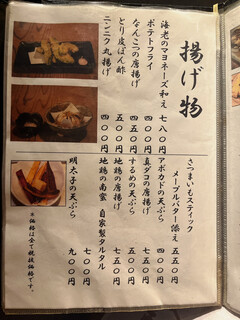 揚げ物
海老のマヨネーズ和え 七八〇円
ポテトフライ 四〇〇円
なんこつの唐揚げ 五〇〇円
とり皮ぽん酢 五〇〇円
ニンニク丸揚げ 四〇〇円
さつまいもスティック
メープルバター添え 五五〇円
アボカドの天ぷら 四〇〇円
真ダコの唐揚げ 七五〇円
するめの天ぷら 五五〇円
地鶏の唐揚げ 七五〇円
地鶏の南蛮 自家製タルタル
七〇〇円
明太子の天ぷら 九〇〇円
※価格は全て税抜価格です。